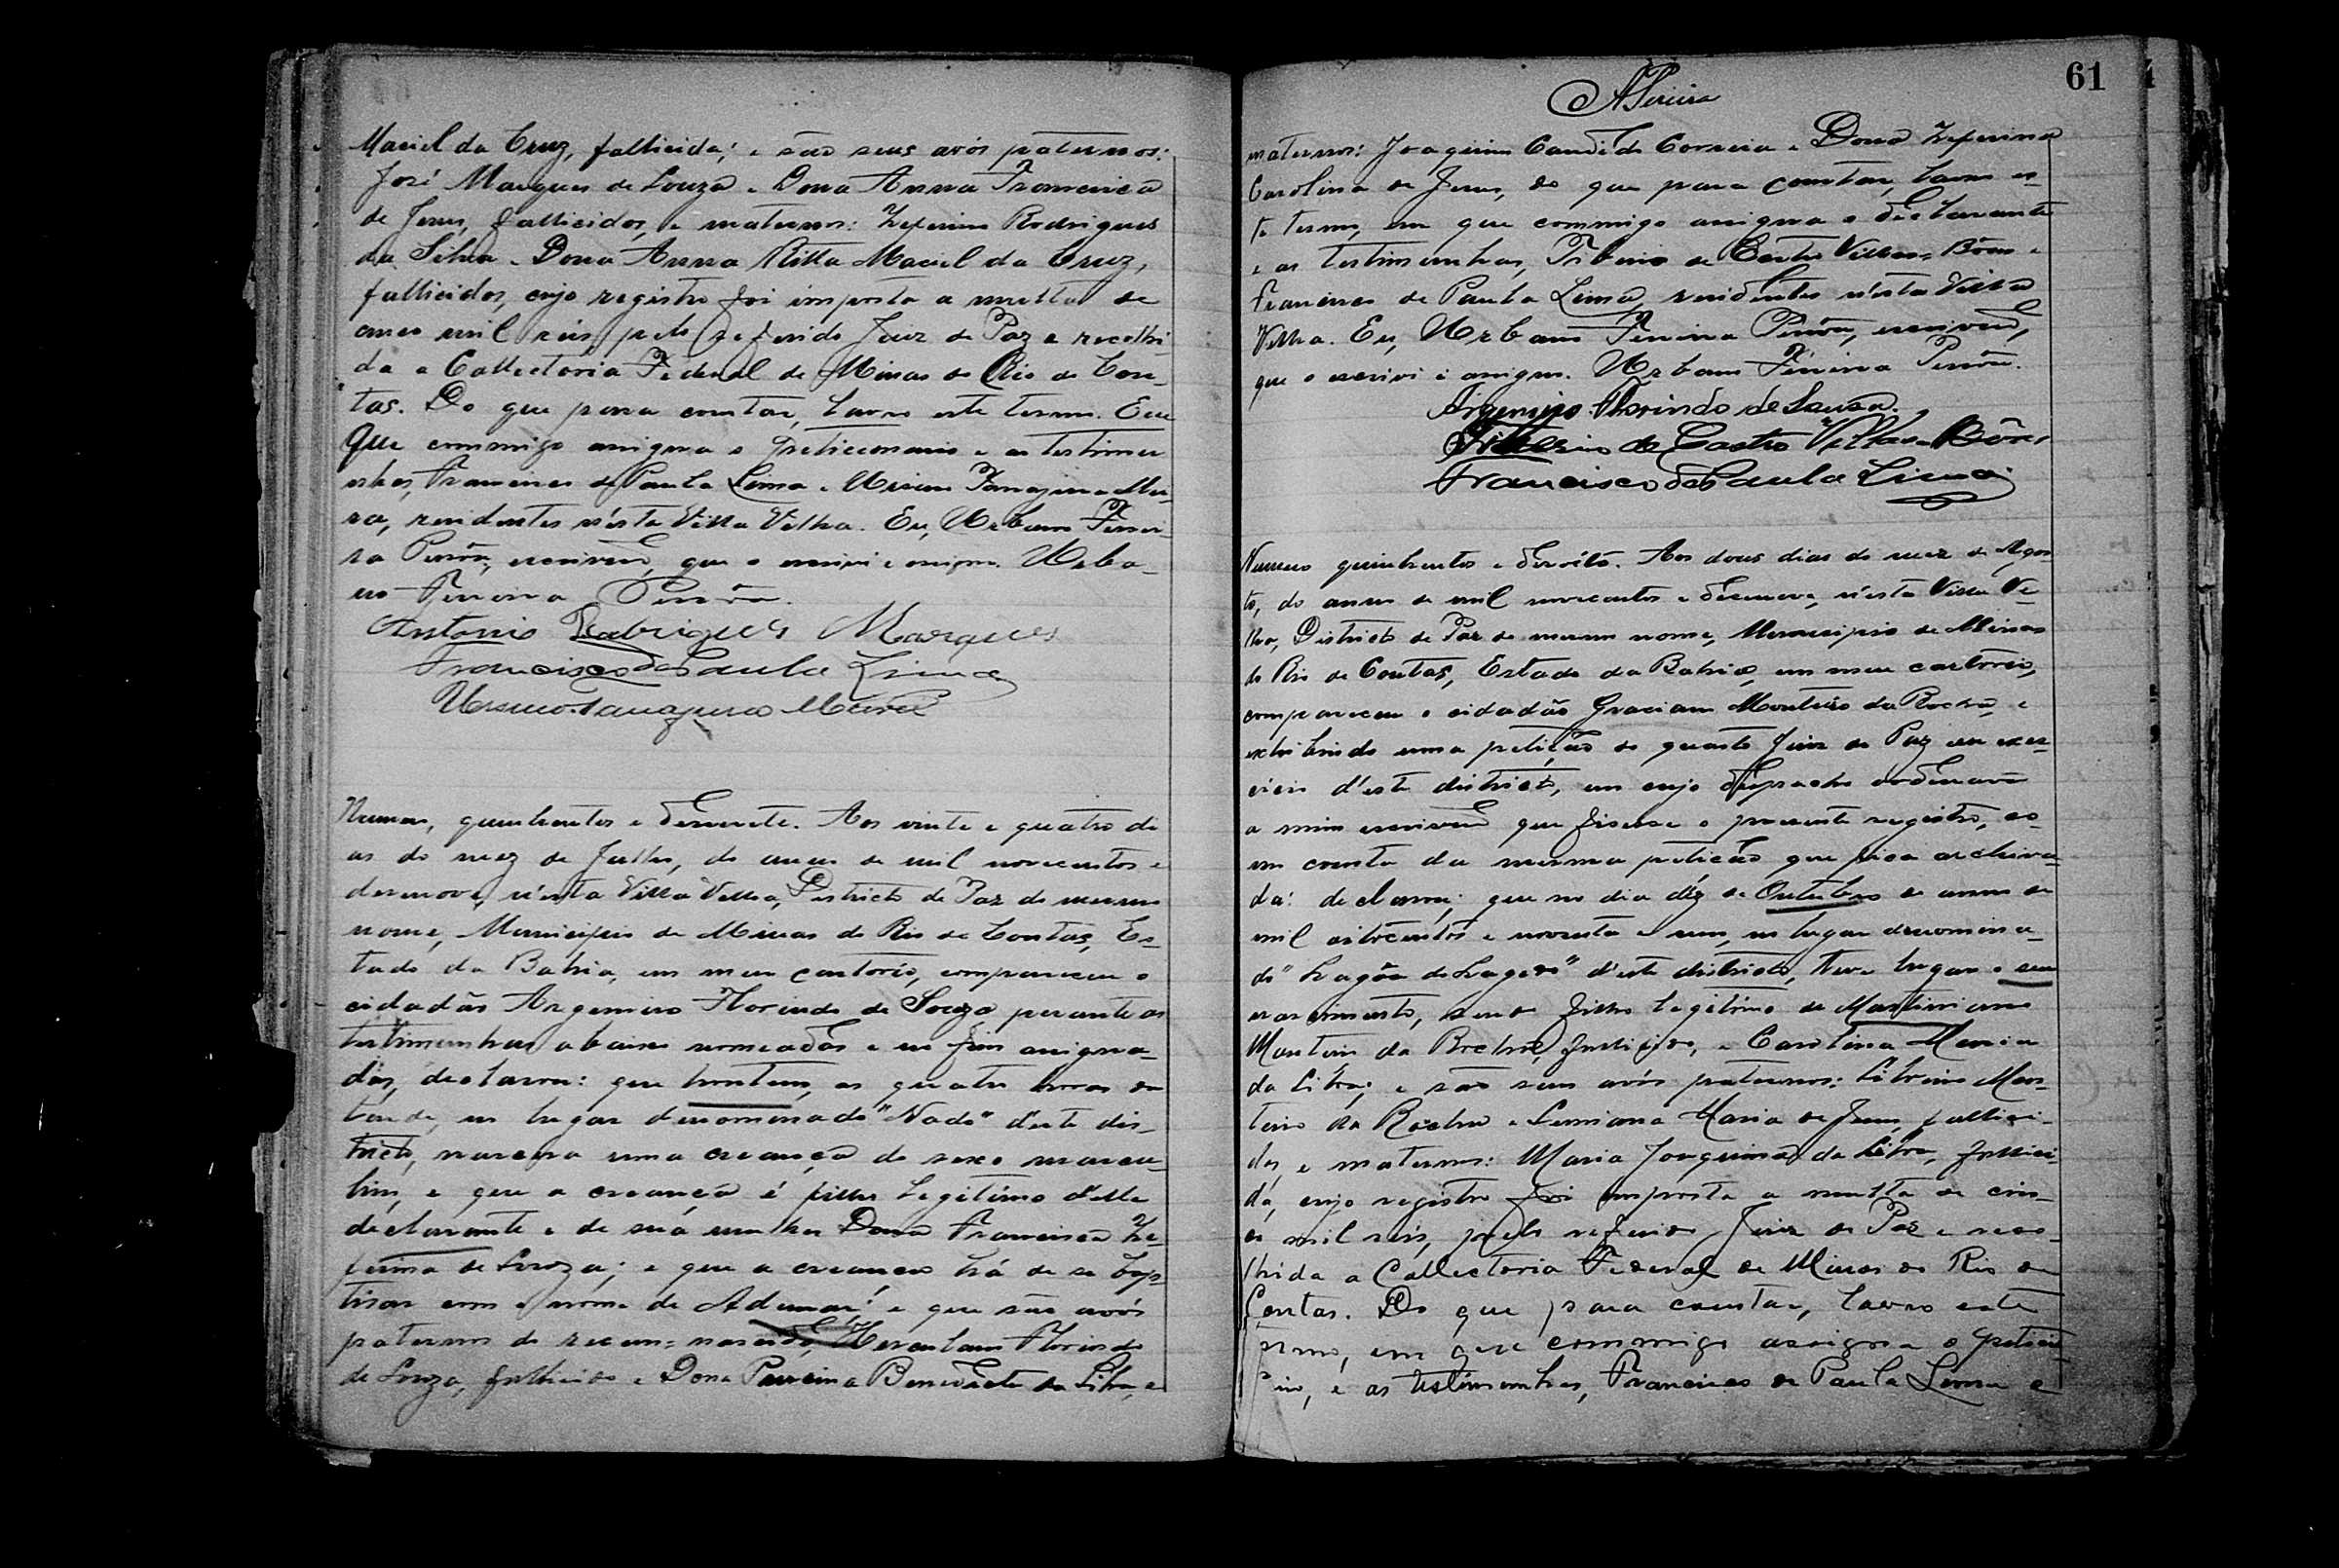 Maciel da Cruz, fallicida; e são seus avós paternos:
José Marques de Souza e Dona Anna Francisca
de Jesus, fallicidos, e maternos: Zeferino Rodrigues
da Silva e Dona Anna Ritta Maciel da Cruz,
fallicidos, cujo registro foi imposta a multa de
cinco mil réis pelo referido Juiz de Paz e recolhi-
da a Collectoria Federal de Minas do Rio de Con-
tas. Do que para constar, lavro este termo. Em
que commigo assigna o peticionario e as testimu-
nhas, Francisco de Paula Lima e Ursino Tanajura Mei-
ra, residentes n'esta Villa Velha. Eu, Urbano Ferrei-
ra, escrivão, que o escrivi e assigno. Urba-
no
Antonio Rodrigues Marques
Francisco de Paula Lima
Ursino Tanajura Meira
Numero, quinhentos e desesete. Aos vinte e quatro di-
as do mez de Julho, do anno de mil novecentos e
desenove, n'esta Villa Velha, Districto de Paz do mesmo
nome, Municipio de Minas do Rio de Contas, Es-
tado da Bahia, em meu cartorio, compareceu o
cidadão Argemiro Florindo de Souza perante as
testimunhas abaixo nomeadas e no fim assigna-
das, declarou: que hontem, as quatro horas da
tarde, no lugar denominado "Nado" d'este dis-
tricto, nasceu uma creança do sexo mascu-
lino, e que a creança é filho legitimo d'elle
declarante e de sua mulher Dona Francisca Ze-
ferina de Souza; e que a creança há de se bap-
tisar com o nome de Ademar; e que são avós
paternos do recem-nascido, Herculano Florindo
de Souza, fallicido e Dona Benedicta da Silva, e
61
APereira
maternos: Joaquim Candido Correia e Dona Zeferina
Carolina de Jesus, do que para constar, lavro es-
te termo, em que commigo assigna o declarante
e as testimunhas, Tiberio de Castro Villas-Bôas e
Francisco de Paula Lima, residentes n'esta Villa
Velha. Eu, Urbano, escrivão,
que o escrivi e assigno. Urbano
Argemiro Florindo de Souza.
Tiberio de Castro Villas-Bôas
Francisco de Paula Lima
Numero quinhentos e desoito. Aos dous dias do mez de Agos-
to, do anno de mil novecentos e desenove, n'esta Villa Ve-
lha, Districto de Paz do mesmo nome, Municipio de Minas
do Rio de Contas, Estado da Bahia, em meu cartorio,
compareceu o cidadão Graciano Monteiro da Rocha, e
exhibindo uma petição do quarto Juiz de Paz em exer-
cicio d'este districto, em cujo despacho ordenava
a mim escrivão que fisesse o presente registro, co-
mo consta da mesma petição que fica archiva-
da: declarou: que no dia dez de Outubro do anno de
mil oitocentos e noventa e um, no lugar denomina-
do "Lagôa do Lagedo" d'este districto, teve lugar o seu
nascimento, sendo filho legitimo de Martiniano
Monteiro da Rocha, fallicido, e Carolina Maria
da Silva; e são seus avós paternos: Silvino Mon-
teiro da Rocha e Maria de Jesus, fallici-
dos, e maternos: Maria Joaquina da Silva, fallici-
da, cujo registro foi imposta a multa de cin-
co mil réis, pelo referido Juiz de Paz e reco-
lhida a Collectoria Federal de Minas do Rio de
Contas. Do que para constar, lavro este
termo, em que commigo assigna o peticio-
nario, e as testimunhas, Francisco de Paula Lima e